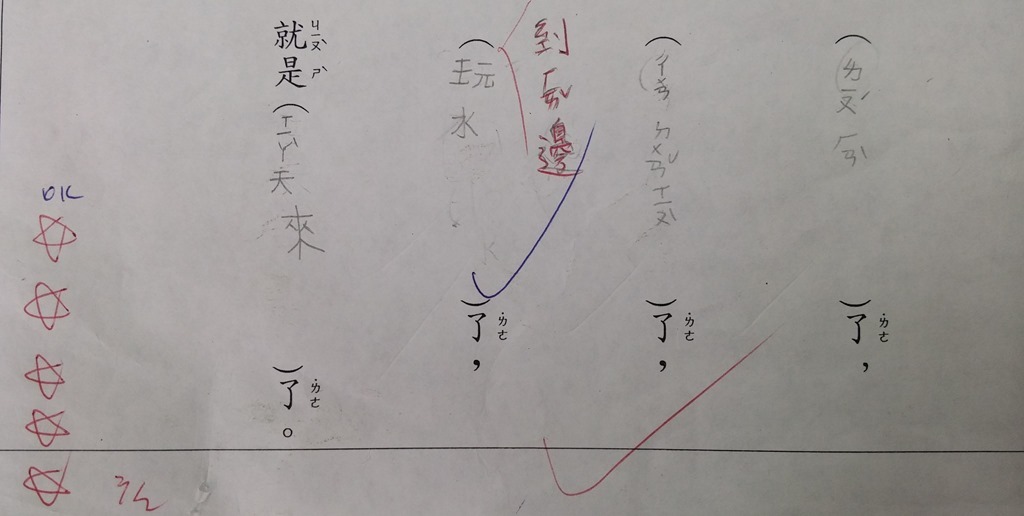 (ㄌㄧㄡˊ ㄏㄢˋ)了ㄌㄜ˙，
(ㄔㄨㄢ ㄉㄨㄢˇ ㄒㄧㄡˋ)了ㄌㄜ˙，
到ㄏㄞˇ邊
(玩水)了ㄌㄜ˙，
就ㄐㄧㄡˋ是ㄕˋ(ㄒㄧㄚˋ天來)了ㄌㄜ˙。
OK